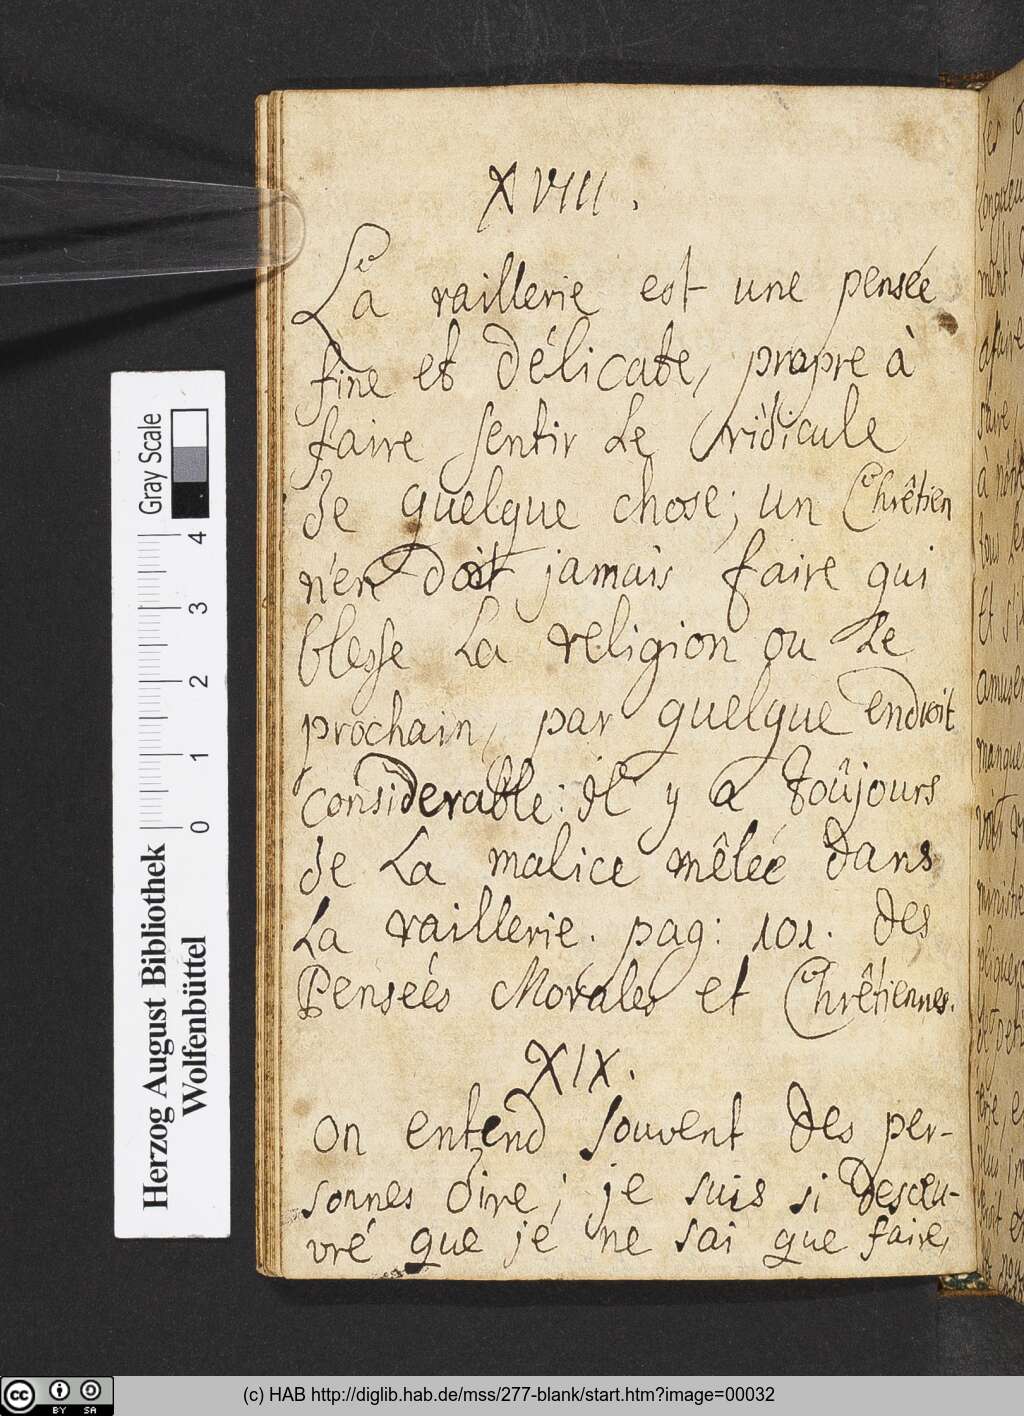 XVIII.
La raillerie est une pensée
fine et délicate, propre à
faire sentir le ridicule
de quelque chose; un Chrêtien
n'en doit jamais faire qui
blesse la religion ou le
prochain, par quelque endroit
considerable: il y a toûjours
de la malice mêleé dans
la raillerie. pag: 101. des
Penseés Morales et Chrêtiennes.
XIX.
on entend souvent des per-
sonnes dire; je suis si desœu-
vré que je ne sai que faire,
Gray Scale
4
3
2
1
0
Herzog August Bibliothek
Wolfenbüttel
cc BY SA
(c) HAB http://diglib.hab.de/mss/277-blank/start.htm?image=00032